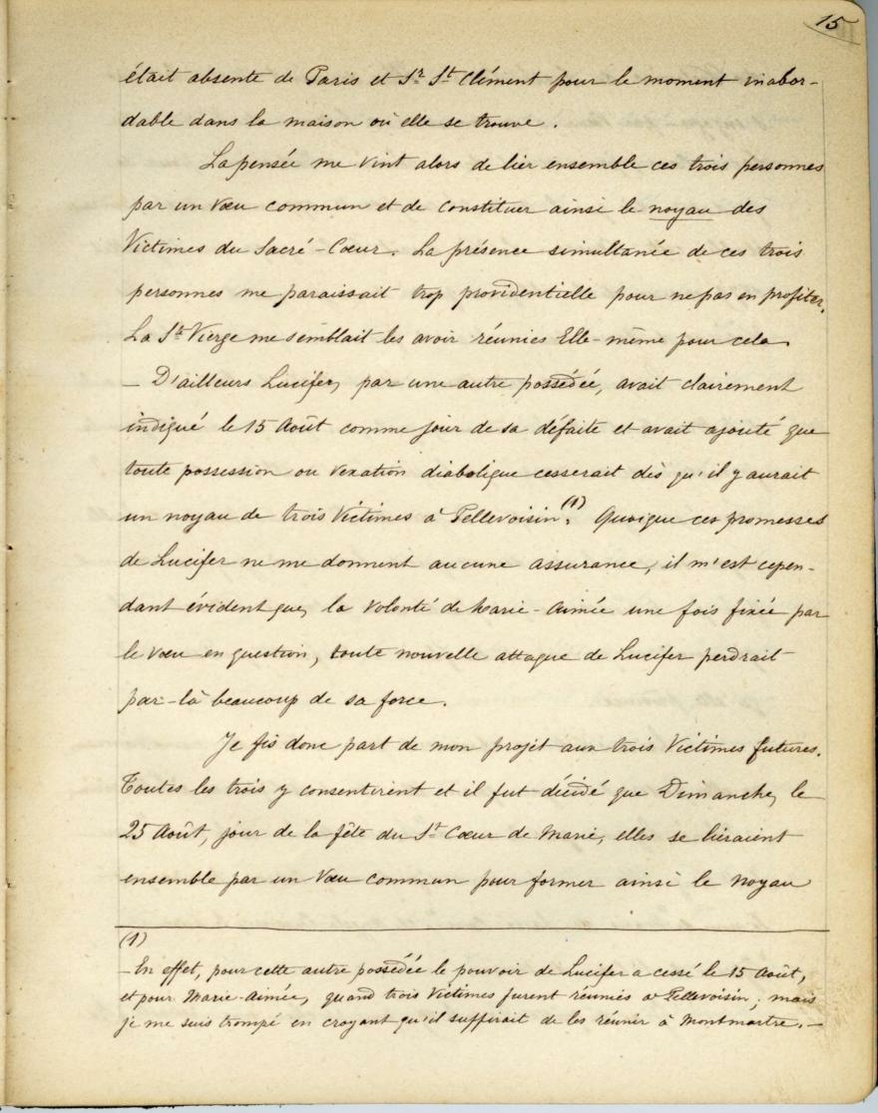 15
était absente de Paris et Sr St Clément pour le moment inabor-
dable dans la maison où elle se trouve.
La pensée me vint alors de lier ensemble ces trois personnes
par un vœu commun et de constituer ainsi le noyau des
Victimes du Sacré-Cœur. La présence simultanée de ces trois
personnes me paraissait trop providentielle pour ne pas en profiter.
La Ste Vierge me semblait les avoir réunies Elle-même pour cela.
— D'ailleurs Lucifer, par une autre possédée, avait clairement
indiqué le 15 Août comme jour de sa défaite et avait ajouté que
toute possession ou vexation diabolique cesserait dès qu'il y aurait
un noyau de trois Victimes à Pellevoisin.(1) Quoique ces promesses
de Lucifer ne me donnent aucune assurance, il m'est cepen-
dant évident que, la volonté de Marie-Aimée une fois fixée par
le vœu en question, toute nouvelle attaque de Lucifer perdrait
par-là beaucoup de sa force.
Je fis donc part de mon projet aux trois Victimes futures.
Toutes les trois y consentirent et il fut décidé que Dimanche, le
25 Août, jour de la fête du St Cœur de Marie, elles se lieraient
ensemble par un vœu commun pour former ainsi le noyau
(1)
— En effet, pour cette autre possédée le pouvoir de Lucifer a cessé le 15 Août,
et pour Marie-Aimée, quand trois Victimes furent réunies à Pellevoisin; mais
je me suis trompé en croyant qu'il suffirait de les réunir à Montmartre. —